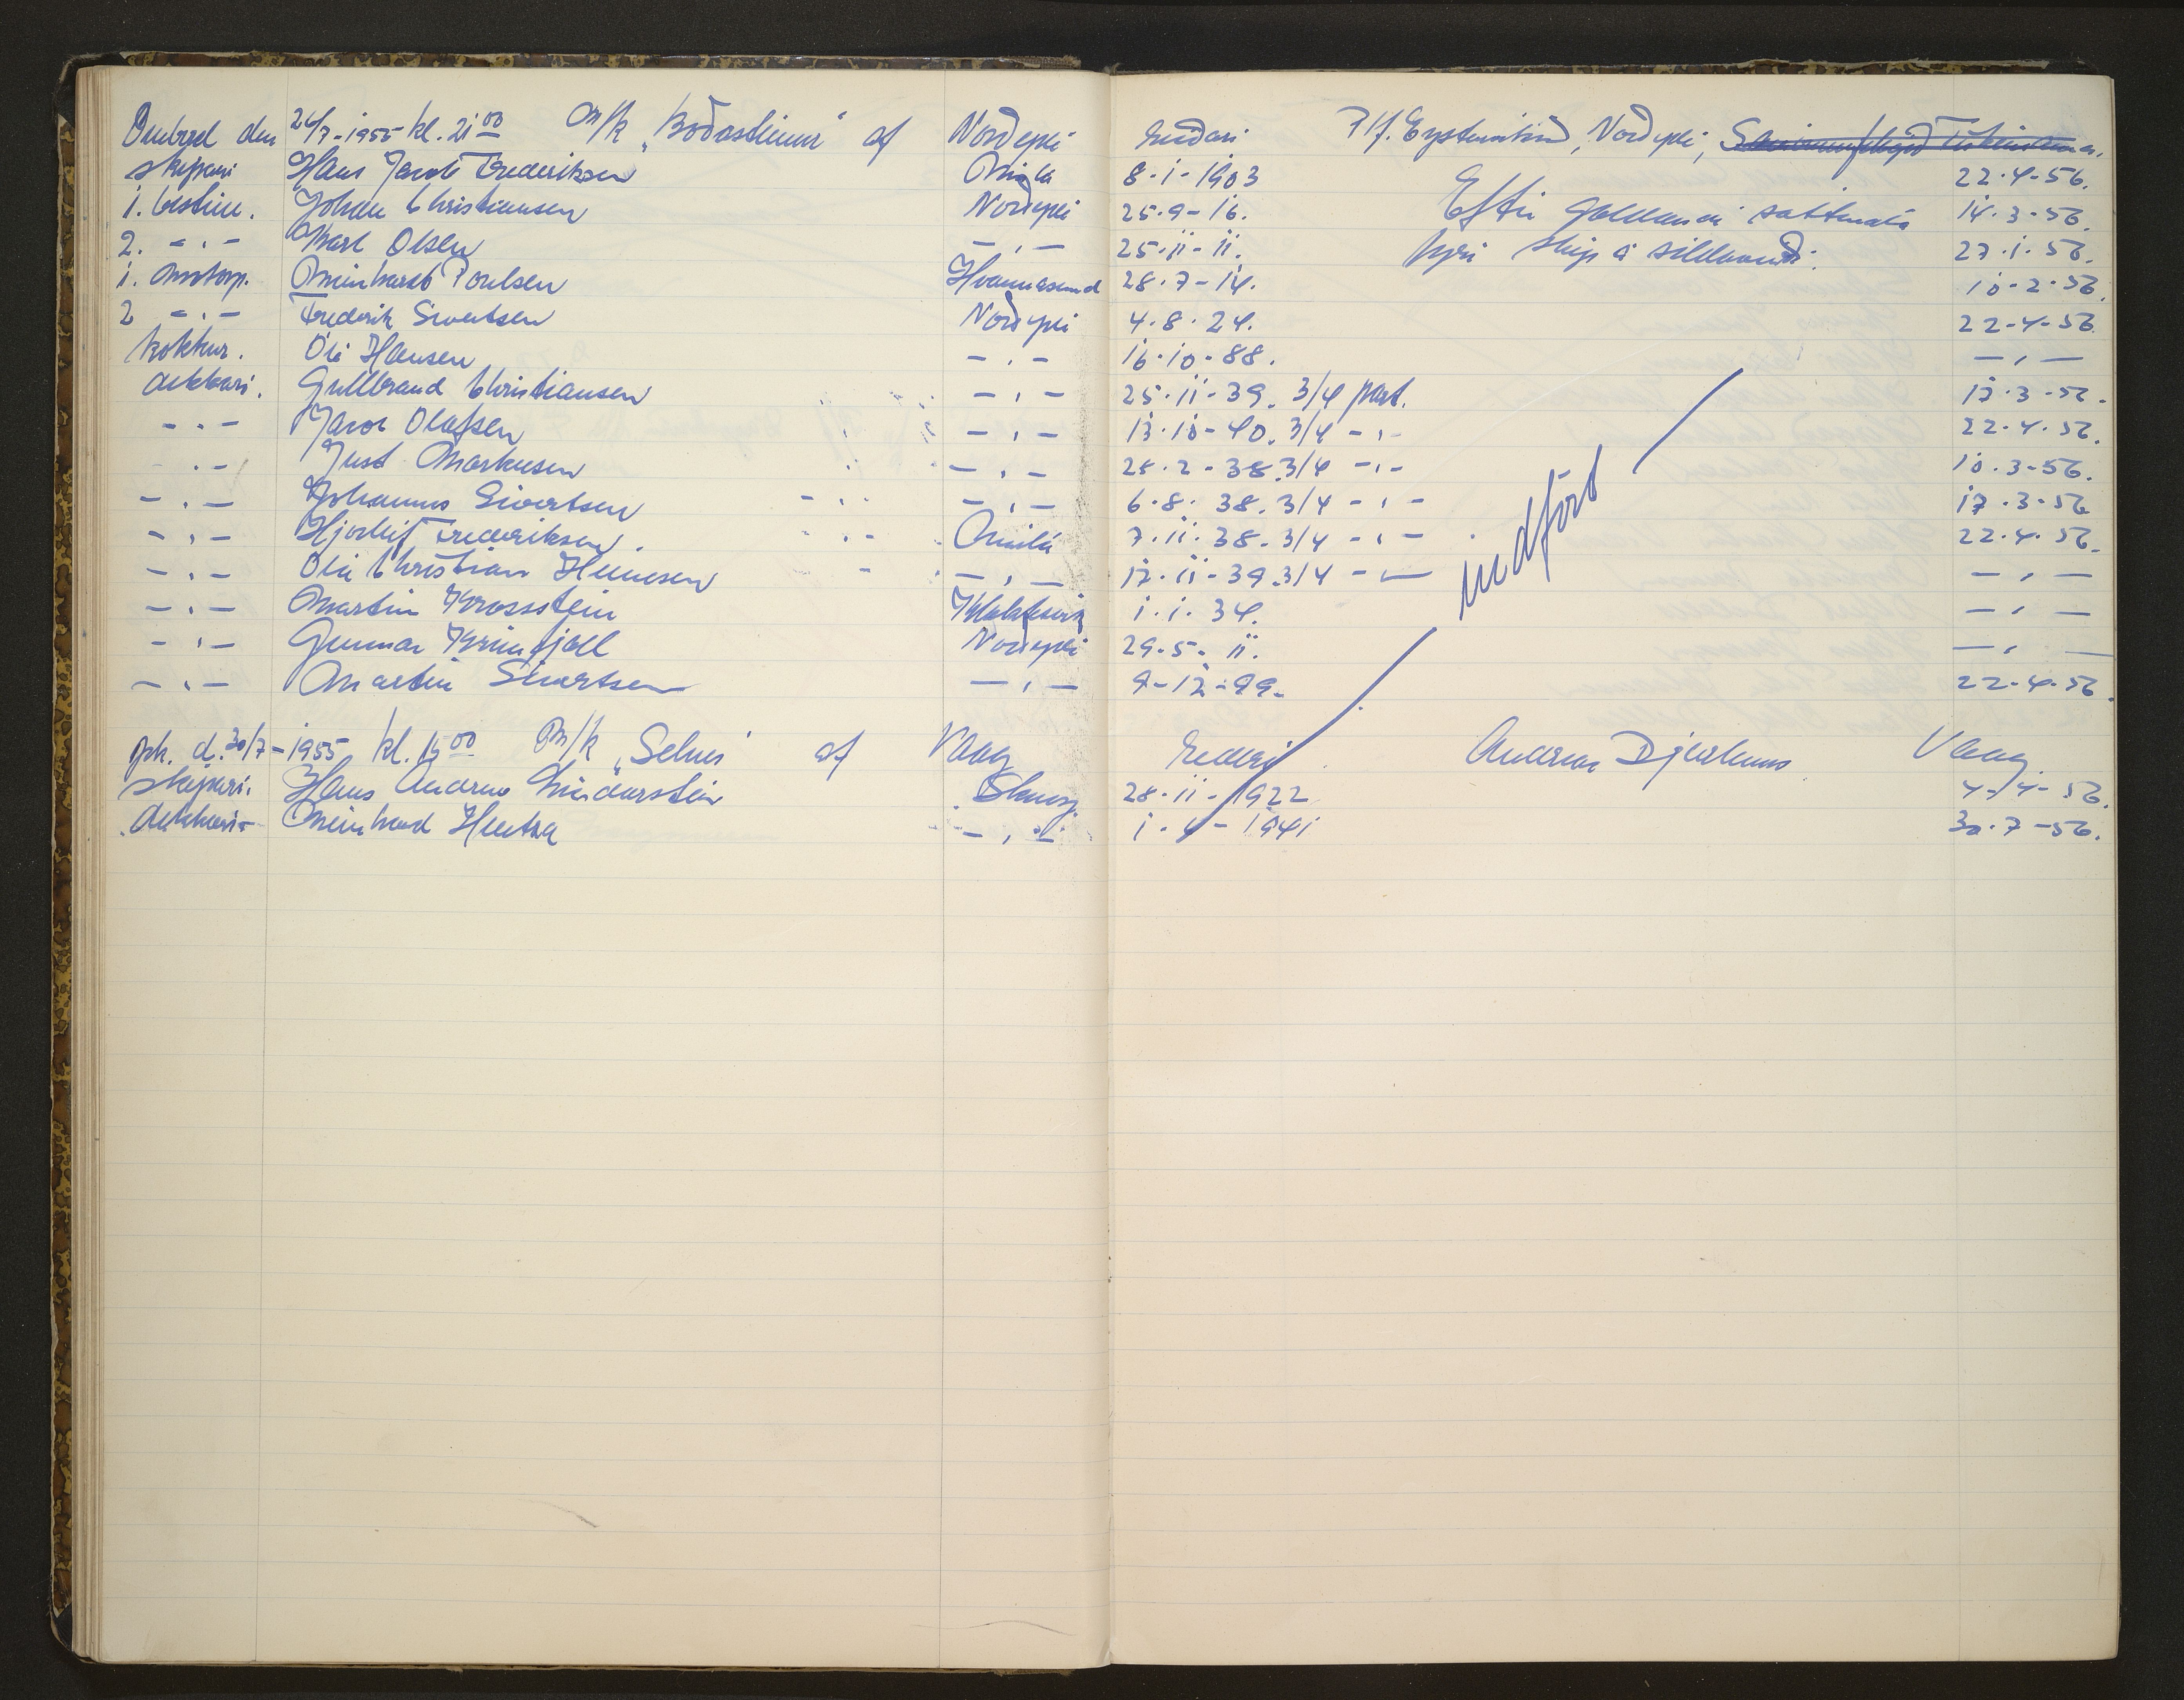 den 24/7-1955 kl. 21 00 M/k „Boðasteinur" af Norðepli reiðari P/f. Eysturtind, Nordepli,
skipari Hans Jacob Frederiksen Múla 8-1-1903 22-4-56.
1. bestim. Johan Christiansen Norðepli 25-9-16. Eftir galdandi sáttmála 14-3-56.
2. - " - Karl Olsen - " - 25-11-11. fyri skip á sildaveiði. 27-1-56.
1. motorp. Meinhardt Poulsen Hvannasund 28-7-14. 10-2-56.
2 - " - Frederik Sivertsen Norðepli 4-8-24. 22-4-56.
kokkur. Óli Hansen - " - 16-10-88. - " -
dekkari. Gullbrand Christiansen - " - 25-11-39. 3/4 part. 17-3-56.
- " - Jacob Olafsen - " - 13-10-40. 3/4 - " - 22-4-56.
- " - Just Markusen - " - 25-2-38. 3/4 - " - 10-3-56.
- " - Johannus Sivertsen - " - 6-8-38. 3/4 - " - 17-3-56
- " - Hjorleif Frederiksen. Múla 7-11-38. 3/4 - " - 22-4-56.
- " - Óli Christian Hennesen - " - 17-11-39. 3/4 - " - - " -
- " - Martin Krossstein Klakksvik 1-1-34. - " -
- " - Gunnar Krimfjall Norðepli 29-5-11. - " -
- " - Martin Sivertsen - " - 9-12-99. 22-4-56.
indført
d. 30/7-1955 kl. 15 00 M/k „Selnes" af Vaag Reðari Andreas Djurhuus Vaag
skipari. Hans Andrew Skuvoy 28-11-1922 4-4-56.
dekkari Meinhard Hentza - " - 1-4-1941 30-7-56.